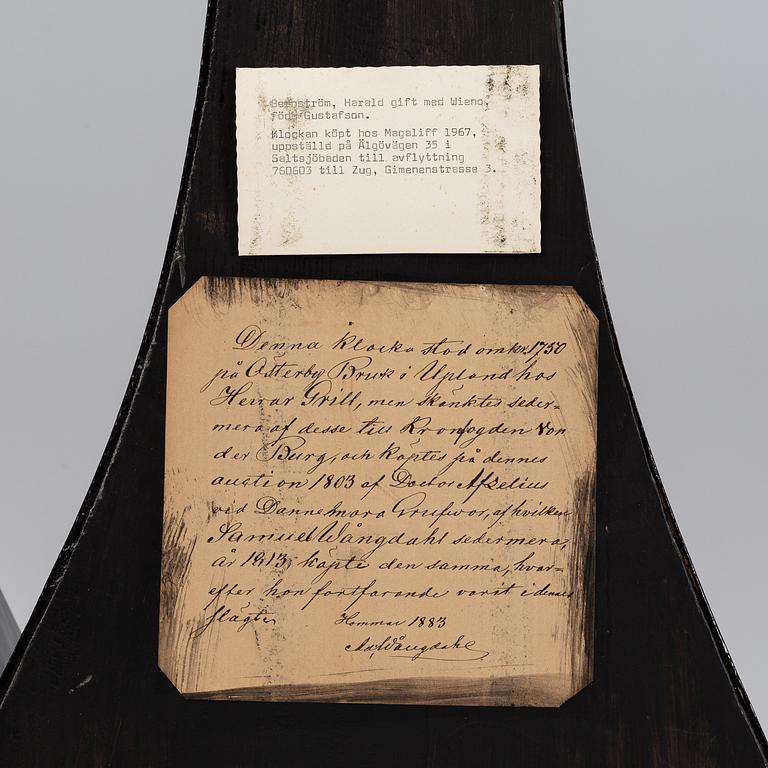 Bergström, Harald gift med Wieno,
född Gustafson.
Klockan köpt hos Magaliff 1967,
uppställd på Älgövägen 35 i
Saltsjöbaden till avflyttning
760603 till Zug, Gimenenstrasse 3.
Denna klocka stod omkr. 1750
på Österby Bruk i Upland hos
Herrar Grill, men skänktes seder=
mera af desse till Kronofogden Von
der Burg, och köptes på dennes
auction 1803 af Doctor Afzelius
vid Dannemora Grufwor, af hvilken
Samuel Wångdahl sedermera,
år 1813, köpte den samma, hvar=
efter hon fortfarande varit i dennes
slägte
Hommar 1883
Ad. Wångdahl